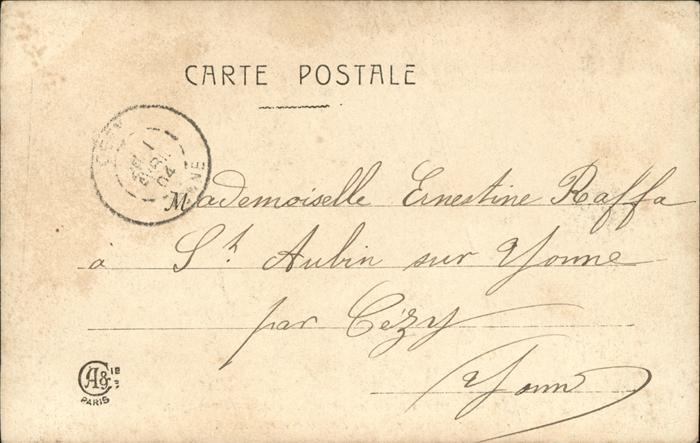 CARTE POSTALE
CÉZY
1
AVRIL
04
YONNE
Mademoiselle Ernestine Raffa
à St. Aubin sur Yonne
par Cézy
Yonne
A & Cie
PARIS